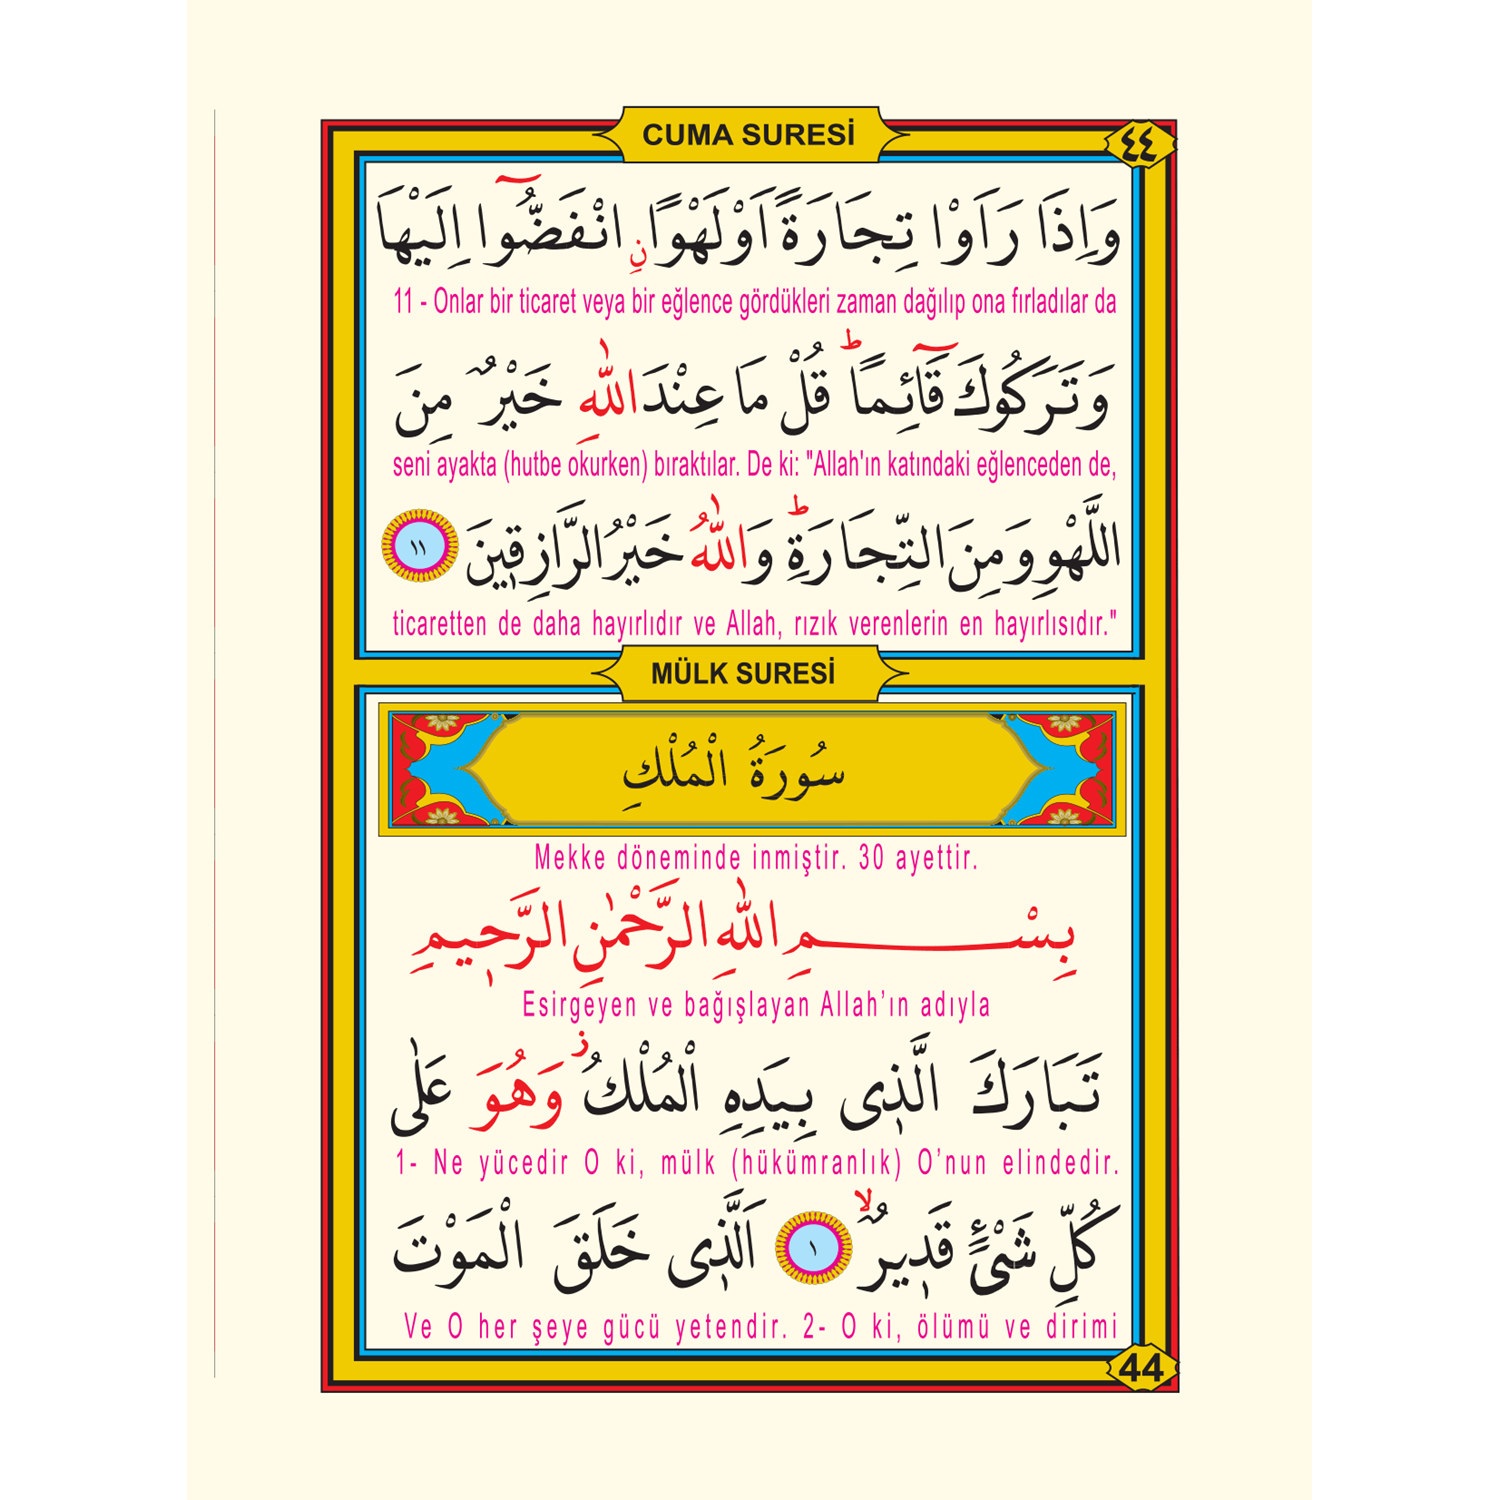 CUMA SURESİ
٤٤
وَاِذَا رَاَوْا تِجَارَةً اَوْ لَهْوًا نِ انْفَضُّٓوا اِلَيْهَا
11 - Onlar bir ticaret veya bir eğlence gördükleri zaman dağılıp ona fırladılar da
وَتَرَكُوكَ قَٓائِمًاۜ قُلْ مَا عِنْدَ اللّٰهِ خَيْرٌ مِنَ
seni ayakta (hutbe okurken) bıraktılar. De ki: "Allah'ın katındaki eğlenceden de,
اللَّهْوِ وَمِنَ التِّجَارَةِۜ وَاللّٰهُ خَيْرُ الرَّازِقٖينَ ١١
ticaretten de daha hayırlıdır ve Allah, rızık verenlerin en hayırlısıdır."
MÜLK SURESİ
سُورَةُ الْمُلْكِ
Mekke döneminde inmiştir. 30 ayettir.
بِسْمِ اللّٰهِ الرَّحْمٰنِ الرَّحٖيمِ
Esirgeyen ve bağışlayan Allah’ın adıyla
تَبَارَكَ الَّذٖى بِيَدِهِ الْمُلْكُؗ وَهُوَ عَلٰى
1- Ne yücedir O ki, mülk (hükümranlık) O’nun elindedir.
كُلِّ شَىْءٍ قَدٖيرٌۙ ١ اَلَّذٖى خَلَقَ الْمَوْتَ
Ve O her şeye gücü yetendir. 2- O ki, ölümü ve dirimi
44